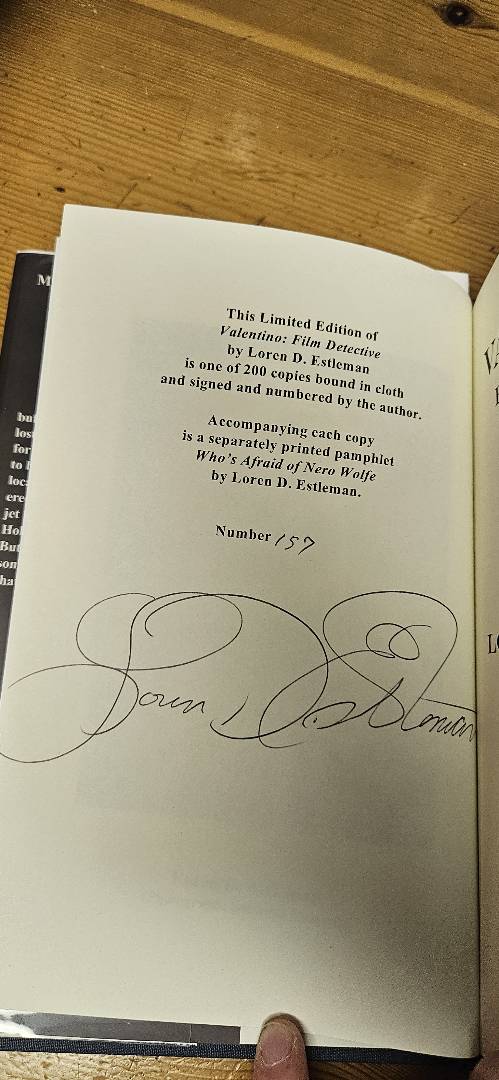 This Limited Edition of
Valentino: Film Detective
by Loren D. Estleman
is one of 200 copies bound in cloth
and signed and numbered by the author.
Accompanying each copy
is a separately printed pamphlet
Who's Afraid of Nero Wolfe
by Loren D. Estleman.
Number 157
Loren D. Estleman
M
bu
los
for
to
loc
ere
jet
Ho
But
son
ha